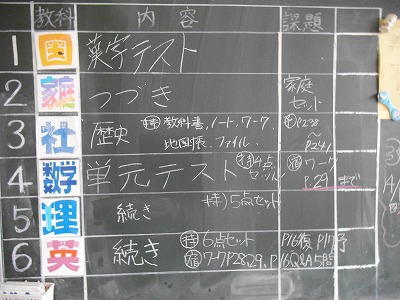 教科 内容 課題
1 国 漢字テスト
2 家庭 つづき 家庭セット
3 社 歴史 持 教科書、ノート、ワーク、 P.238
地図帳、ファイル ～P.241
4 数学 単元テスト 持 4点セット 宿 ワーク P.29まで
5 理 続き 持) 5点セット
6 英 続き 持 6点セット P16復 P17予
宿 ワークP28,29, P.16Q&A5問